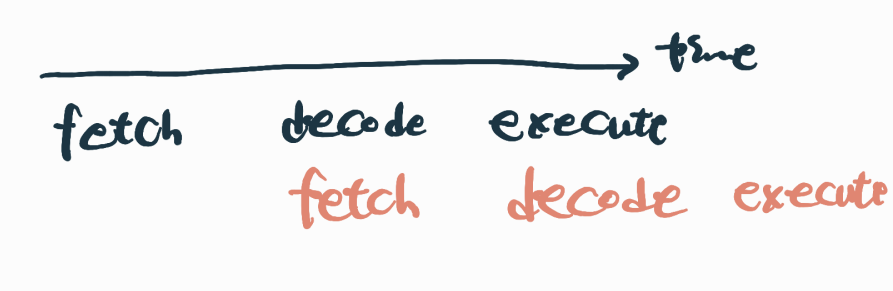 time
fetch decode execute
fetch decode execute